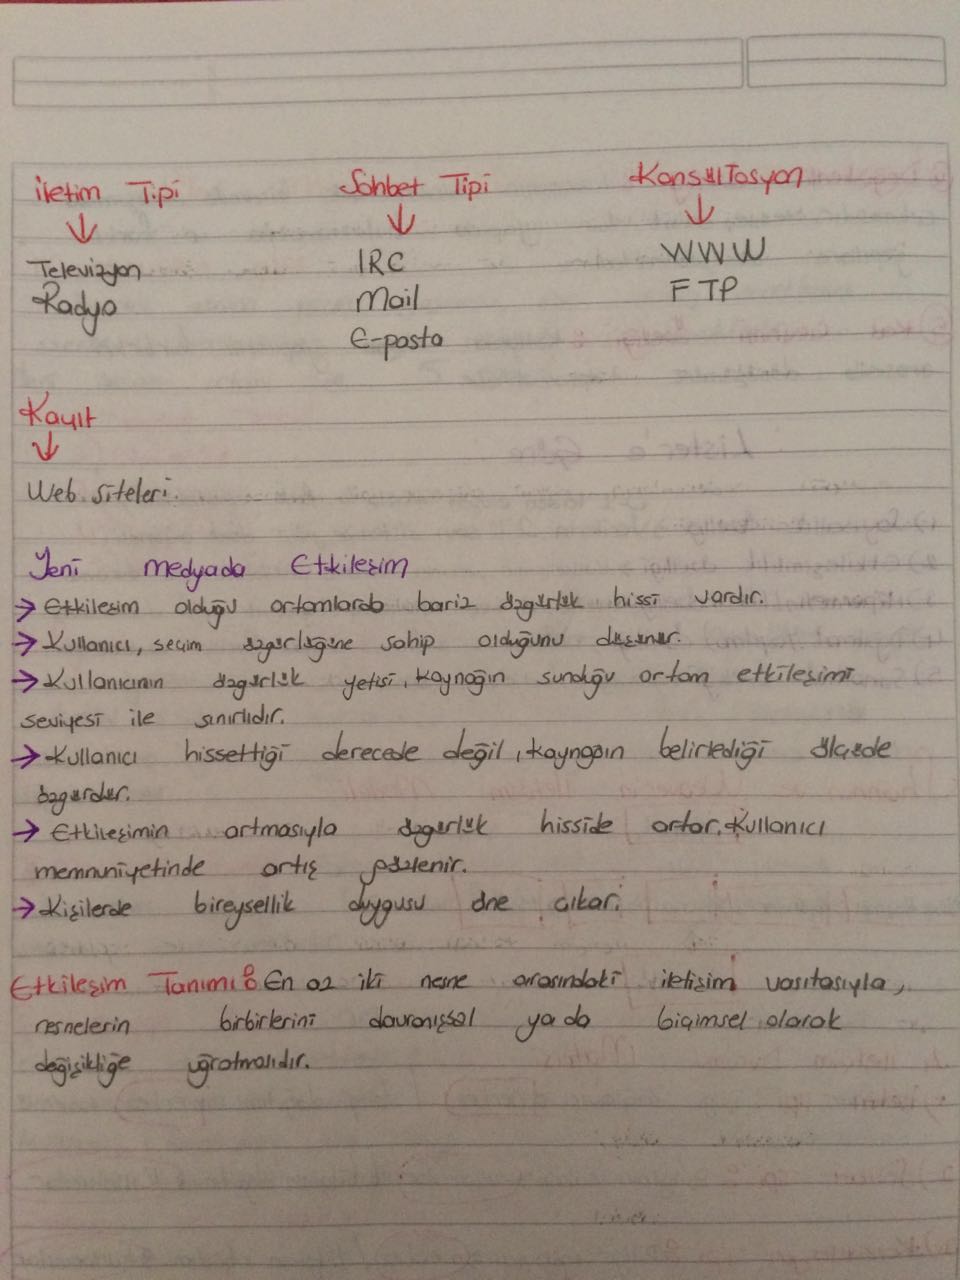 iletim Tipi Sohbet Tipi Konsültasyon
Televizyon IRC WWW
Radyo Mail FTP
E-posta
Kayıt
Web siteleri.
Yeni medyada Etkileşim
→ Etkileşim olduğu ortamlarda bariz özgürlük hissi vardır.
→ Kullanıcı, seçim özgürlüğüne sahip olduğunu düşünür.
→ Kullanıcının özgürlük yetisi, kaynağın sunduğu ortam etkileşimi
seviyesi ile sınırlıdır.
→ Kullanıcı hissettiği derecede değil, kaynağın belirlediği ölçüde
özgürdür.
→ Etkileşimin artmasıyla özgürlük hisside artar. Kullanıcı
memnuniyetinde artış gözlenir.
→ Kişilerde bireysellik duygusu öne çıkar.
Etkileşim Tanımı: En az iki nesne arasındaki iletişim vasıtasıyla,
nesnelerin birbirlerini davranışsal yada biçimsel olarak
değişikliğe uğratmalıdır.